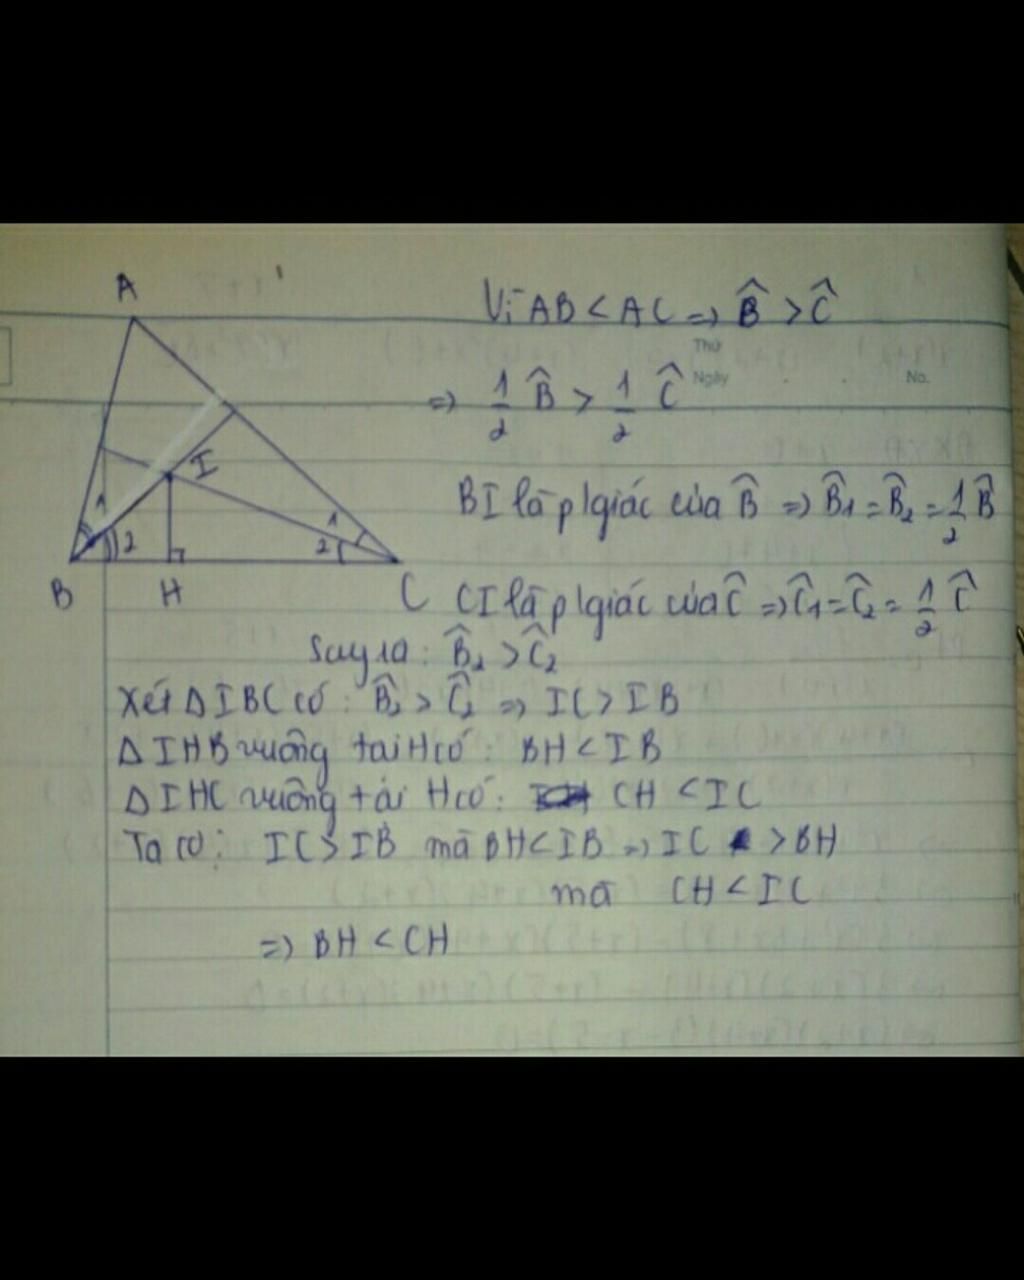 A
Vì AB < AC => B̂ > Ĉ
Thứ
Ngày
No.
=> 1/2 B̂ > 1/2 Ĉ
I
1
2
1
2
B
H
C
BI là p/giác của B̂ => B̂1 = B̂2 = 1/2 B̂
CI là p/giác của Ĉ => Ĉ1 = Ĉ2 = 1/2 Ĉ
Suy ra: B̂2 > Ĉ2
Xét ΔIBC có: B̂2 > Ĉ2 => IC > IB
ΔIHB vuông tại H có: BH < IB
ΔIHC vuông tại H có: CH < IC
Ta có: IC > IB mà BH < IB => IC > BH
mà CH < IC
=> BH < CH